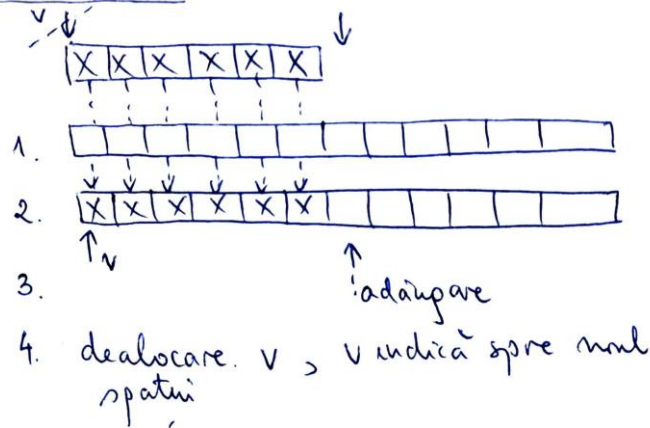 v
X X X X X X
1.
2. X X X X X X
v
3. adăugare
4. dealocare v, v indică spre noul
spațiu